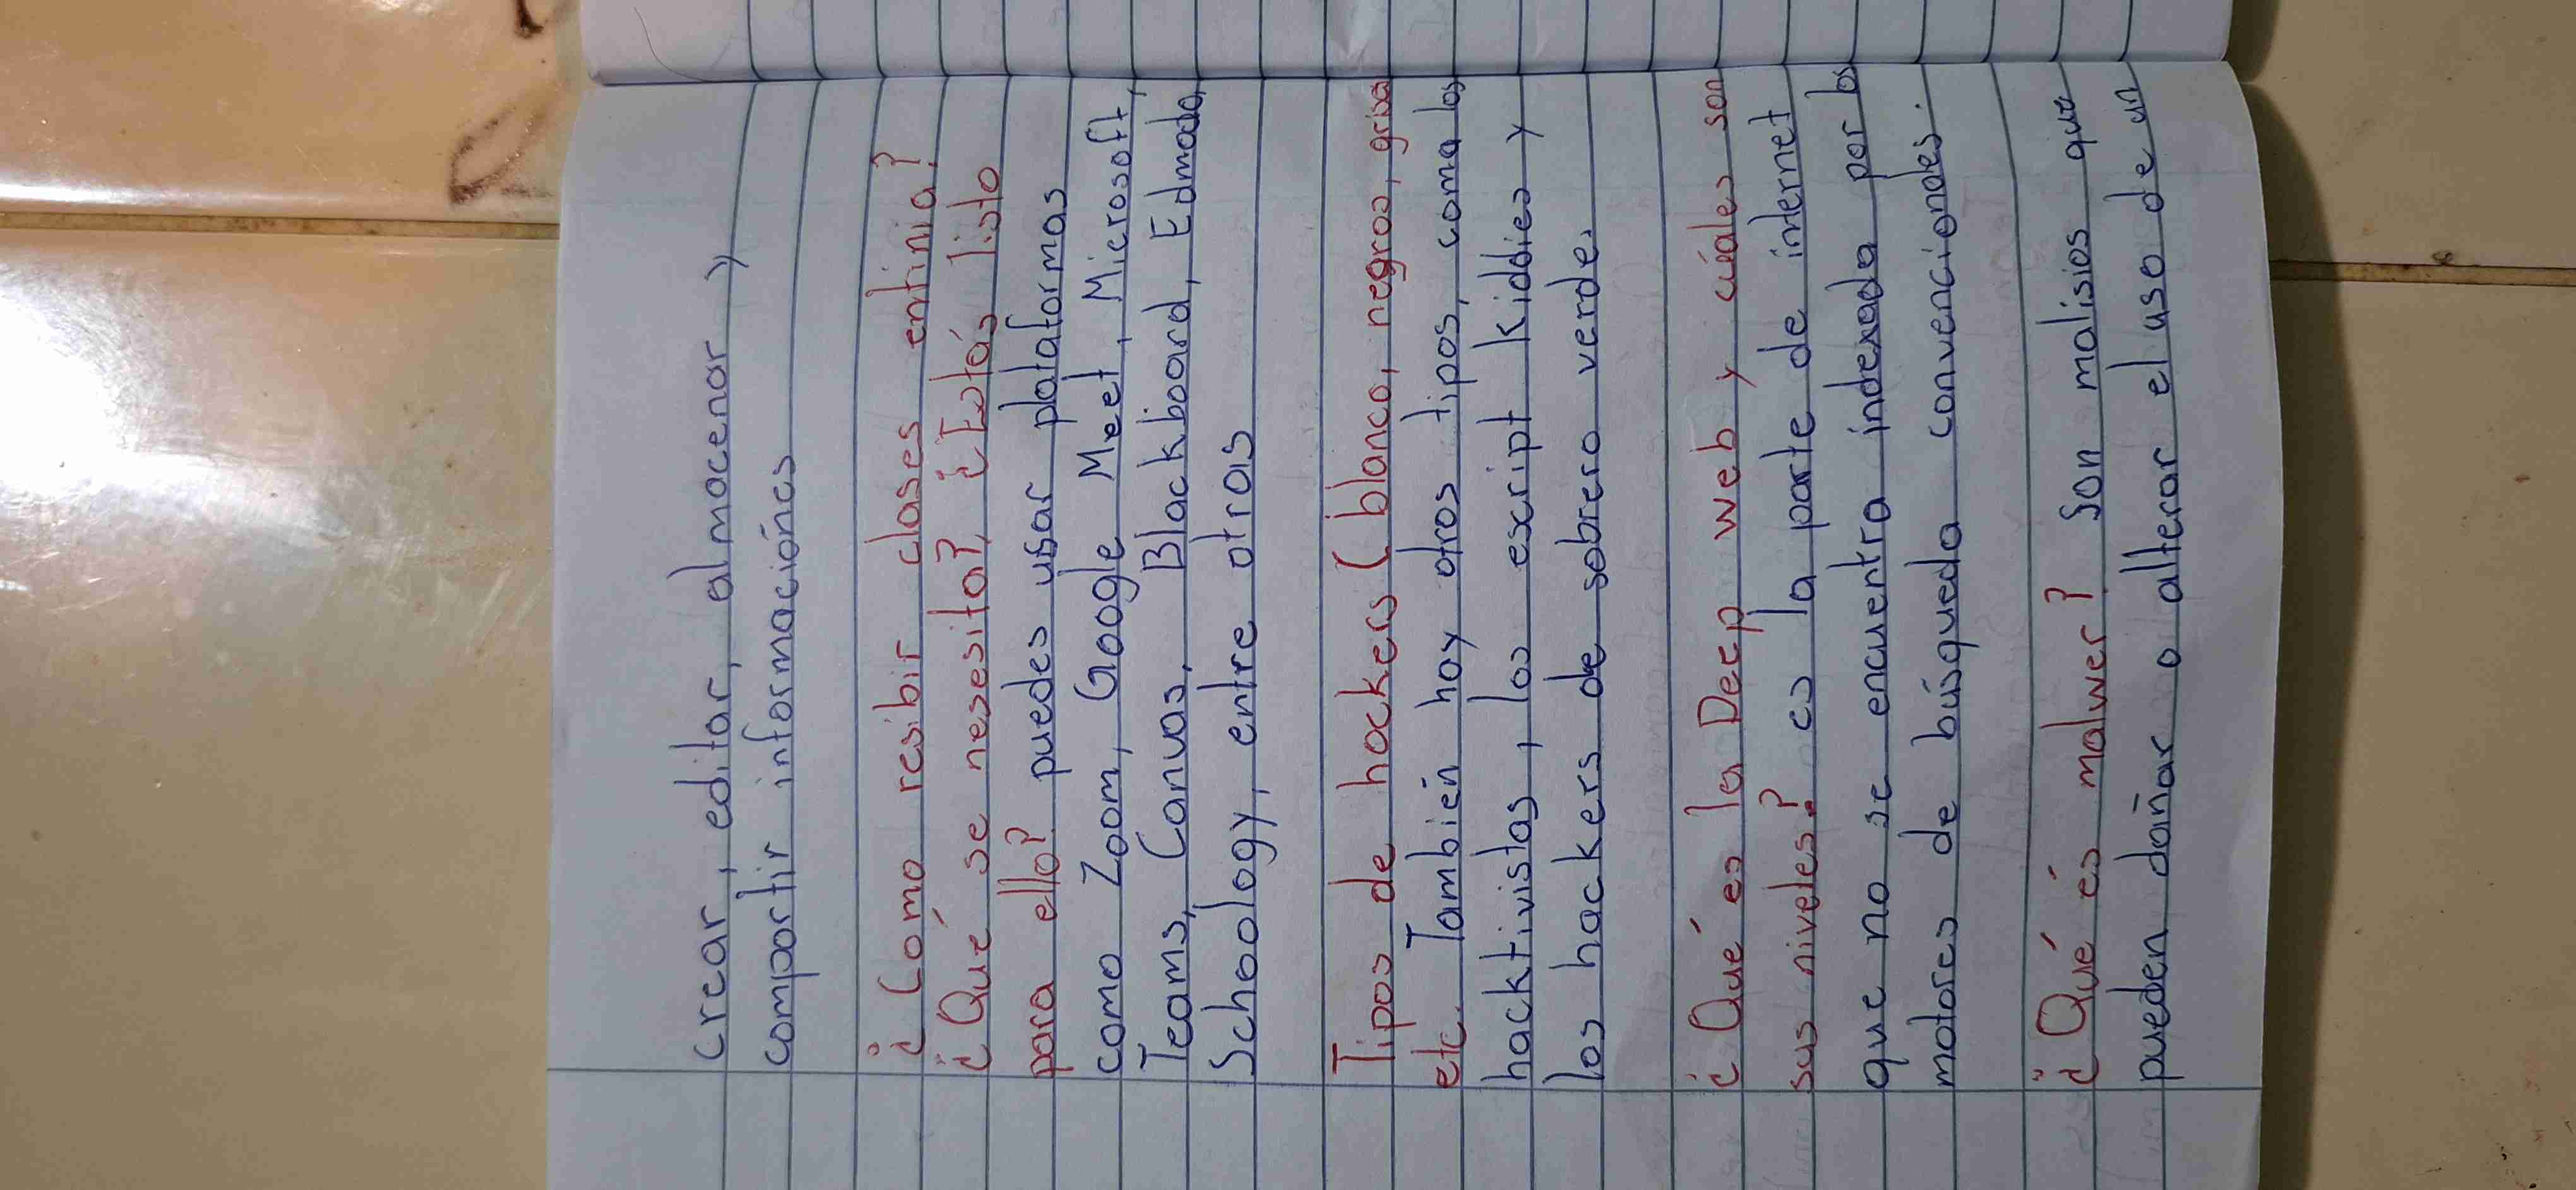 crear, editar, almacenar y
compartir informaciónes
¿Como resibir clases entinia?
¿Qué se nesesita?, ¿Estás listo
para ello? puedes usar plataformas
como Zoom, Google Meet, Microsoft,
Teams, Canvas, Blackboard, Edmodo,
Schoology, entre otras
Tipos de hackers (blanco, negros, grises
etc. También hay otros tipos, como los
hacktivistas, los escript kiddies y
los hackers de sobrero verde.
¿Qué es la Deep web y cuáles son
sus niveles? es la parte de internet
que no se encuentra indexada por los
motores de búsqueda convencionales.
¿Qué és malwer? Son malisios que
pueden dañar o alterar el uso de un